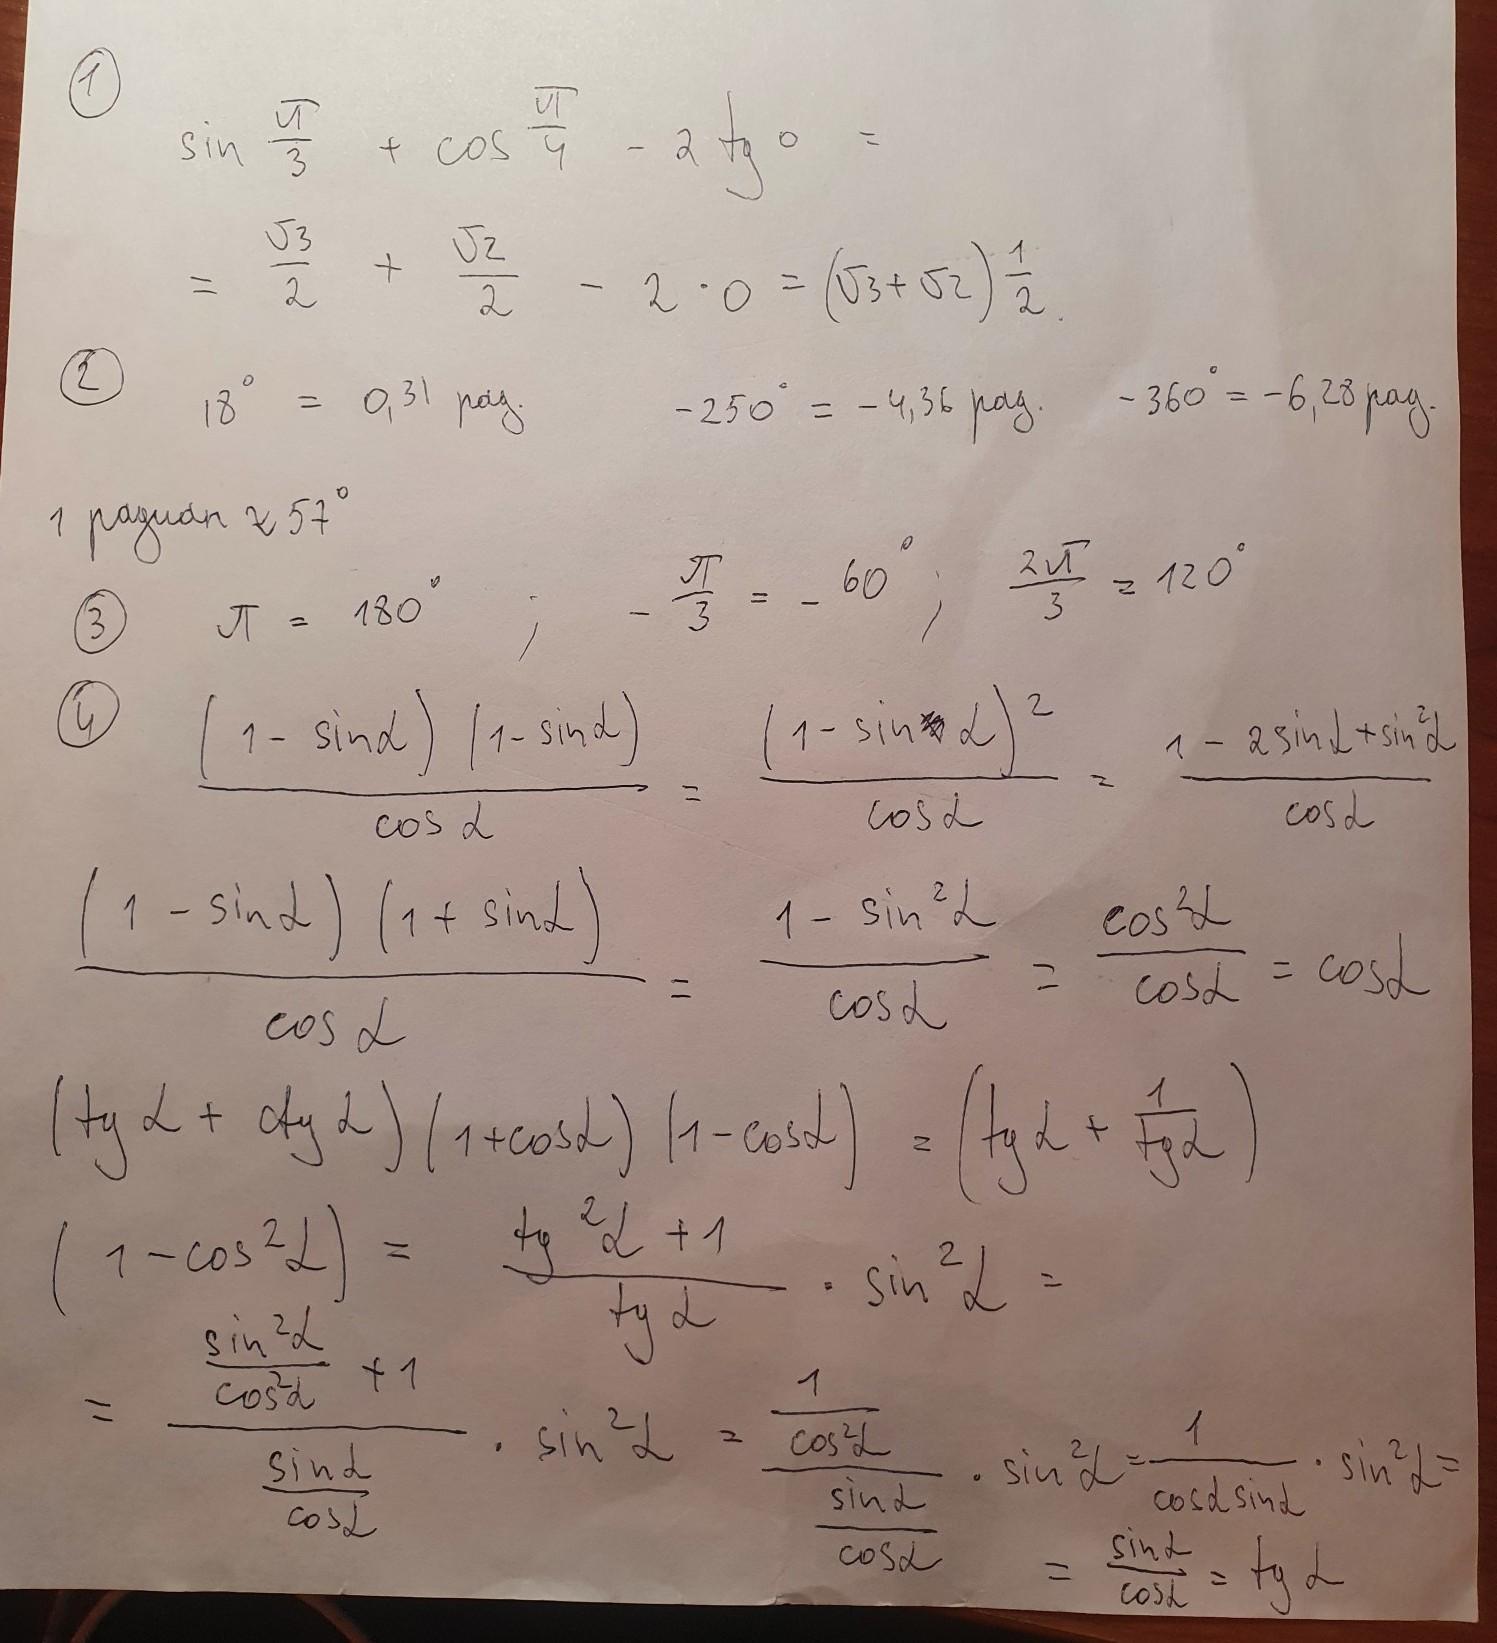 ①
sin π/3 + cos π/4 - 2 tg 0 =
= √3/2 + √2/2 - 2 · 0 = (√3 + √2) 1/2.
② 18° = 0,31 рад. -250° = -4,36 рад. -360° = -6,28 рад.
1 радиан ≈ 57°
③ π = 180° ; -π/3 = -60° ; 2π/3 = 120°
④ (1 - sinα)(1 - sinα)/cosα = (1 - sinα)²/cosα = (1 - 2sinα + sin²α)/cosα
(1 - sinα)(1 + sinα)/cosα = (1 - sin²α)/cosα = cos²α/cosα = cosα
(tgα + ctgα)(1 + cosα)(1 - cosα) = (tgα + 1/tgα)
(1 - cos²α) = (tg²α + 1)/tgα · sin²α =
= (sin²α/cos²α + 1)/(sinα/cosα) · sin²α = (1/cos²α)/(sinα/cosα) · sin²α = 1/(cosα sinα) · sin²α =
= sinα/cosα = tgα